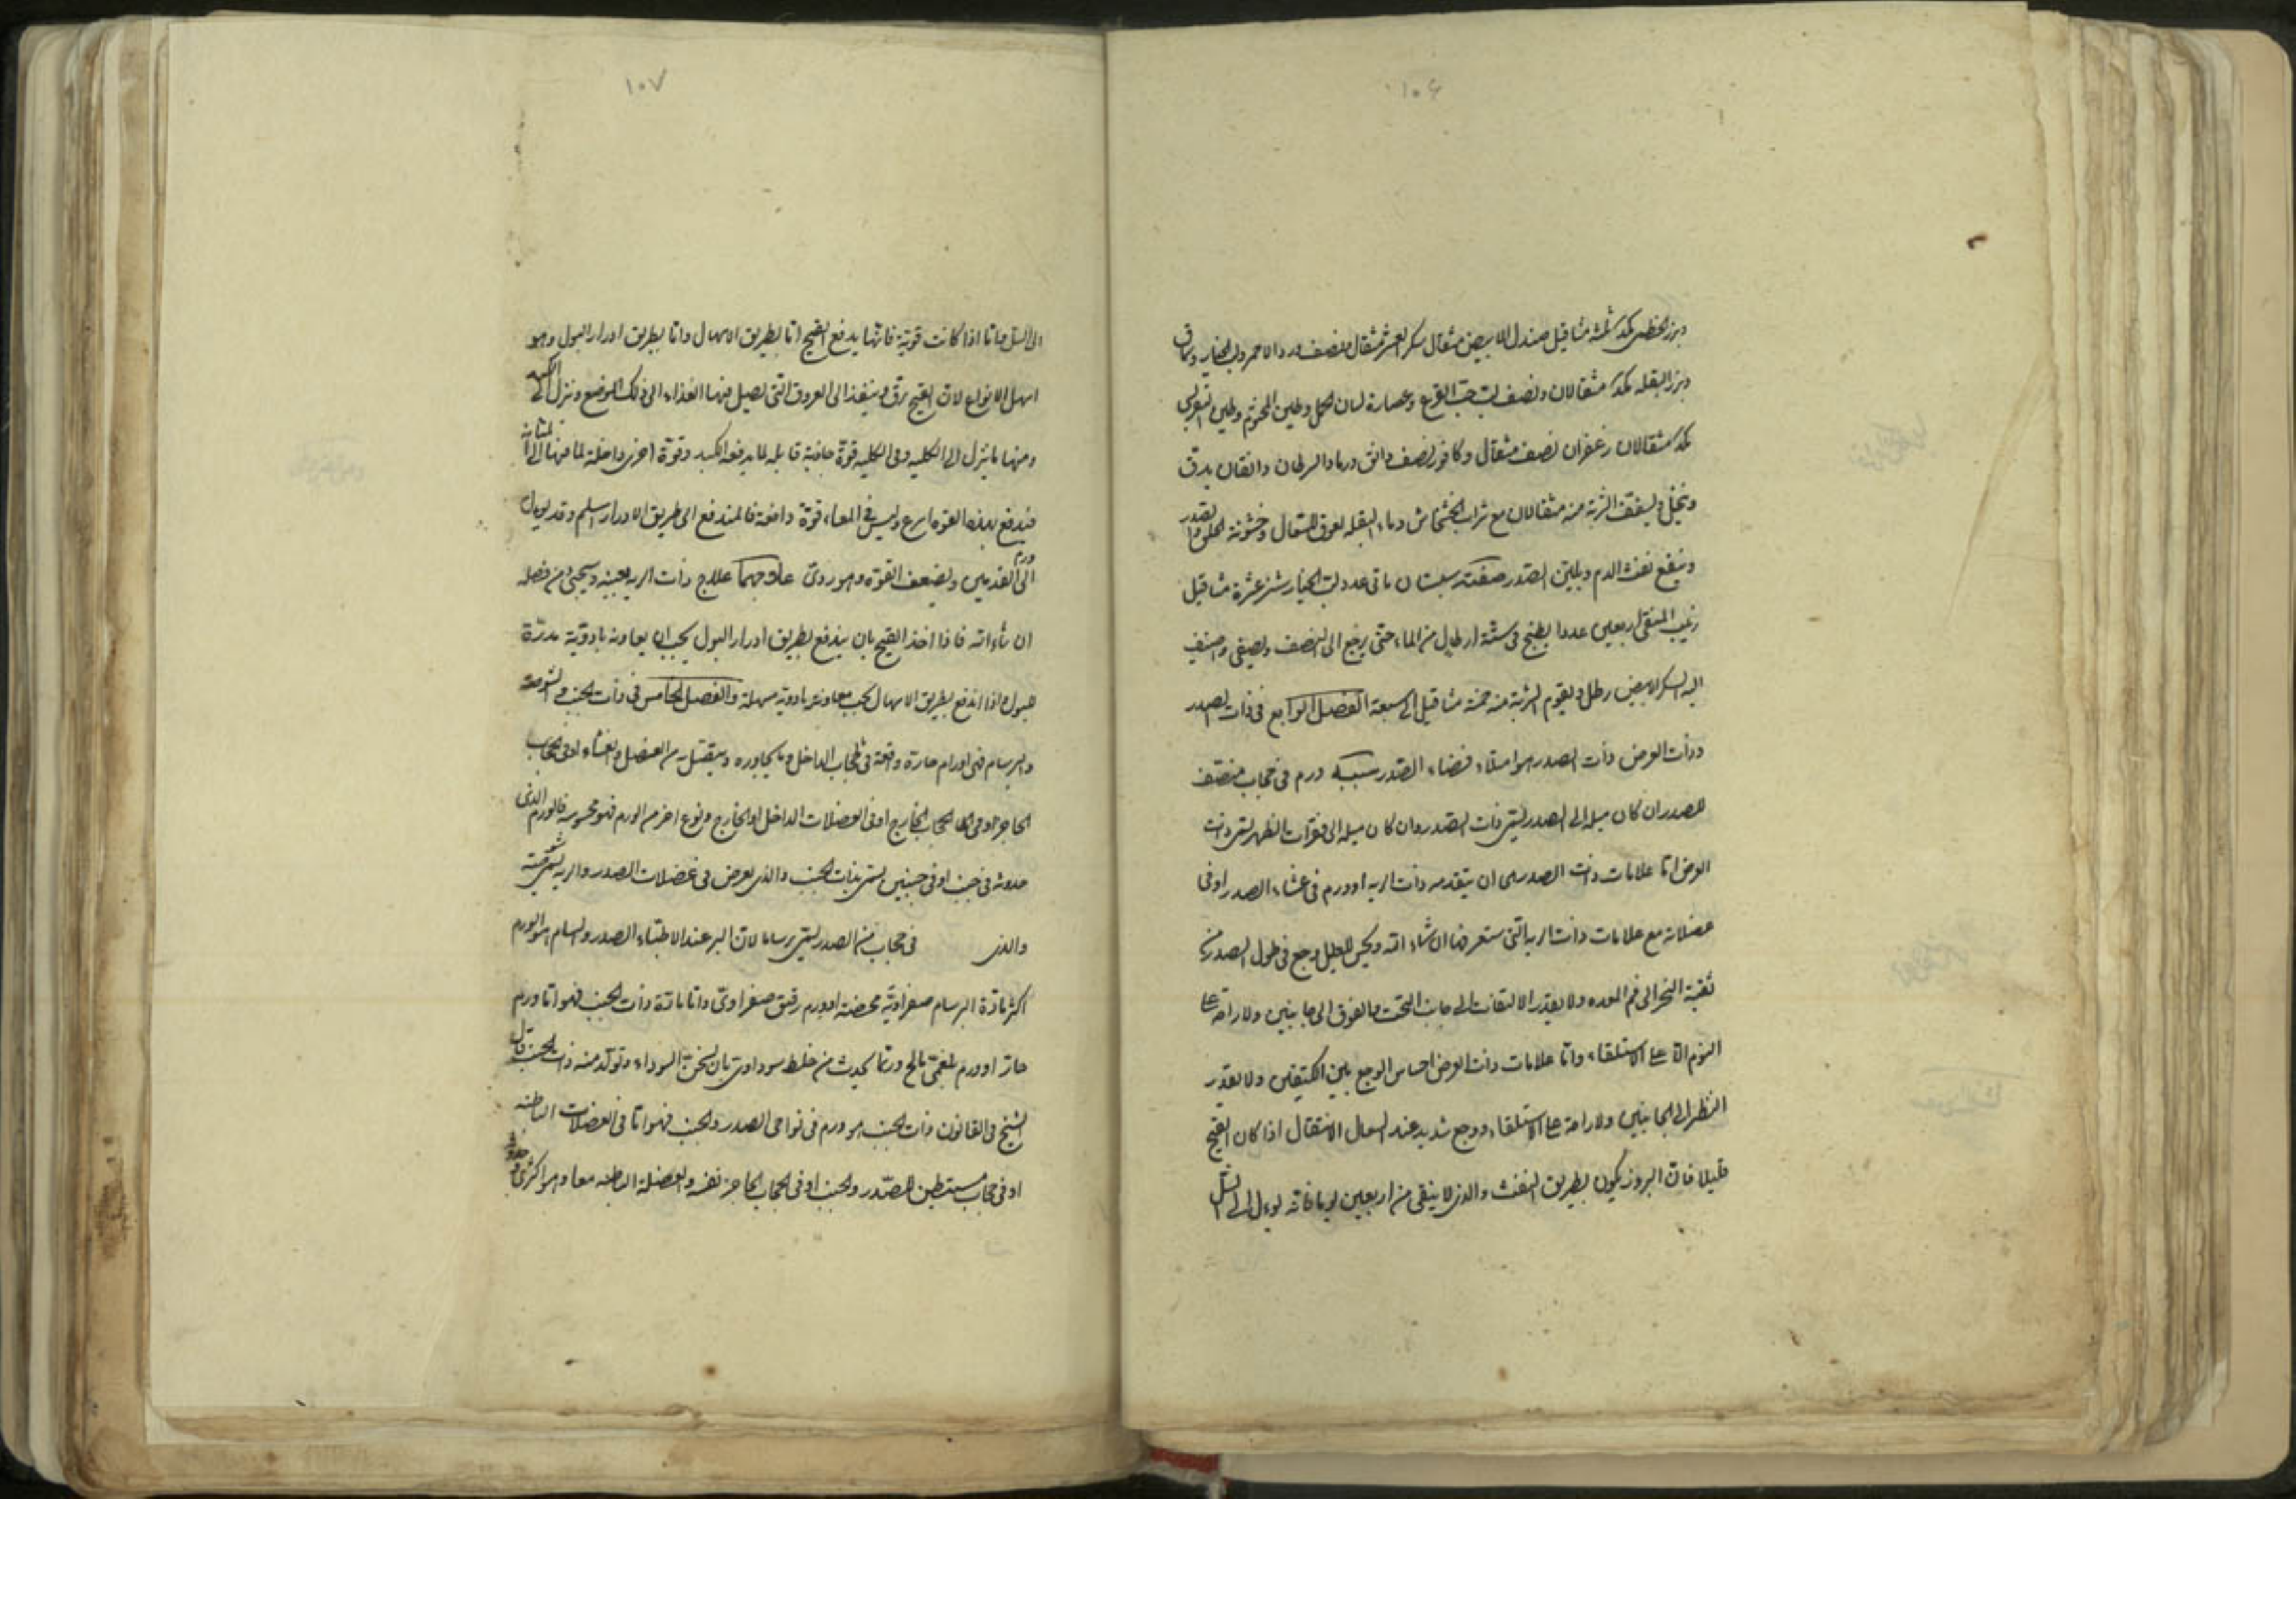 ١٠٦
وبزر الخطمى مكد ثلثة مثاقيل صندل الابيض مثقال سكر العشر مثقال ونصف ورد الاحمر ولب الخيار وسماق
وبزر البقله مكد مثقالان ونصف لب حب القرع وعصارة لسان الحمل وطين المختوم وطين القبرسى
مكد مثقالان زعفران نصف مثقال وكافور نصف دانق ورماد السرطان دانقان يدق
وينخل ويسفف الشربة منه مثقالان مع شراب الخشخاش وماء البقله لعوق للسعال وخشونة الحلق والصدر
وينفع نفث الدم ويلين الصدر صفته سبستان ماتى عدد لب الخيار شنبر عشرة مثاقيل
زبيب المنقى اربعين عددا يطبخ فى ستة ارطال من الماء حتى يرجع الى النصف ويصفى واضيف
اليه السكر الابيض رطل ويقوم الشربة منه خمسة مثاقيل الى سبعة الفصل الرابع فى ذات الصدر
وذات العرض ذات الصدر هو امتلاء فضاء الصدر سببه ورم فى حجاب منصف
للصدر ان كان ميله الى الصدر يسمى ذات الصدر وان كان ميله الى فقرات الظهر يسمى ذات
العرض اما علامات ذات الصدر هى ان يتقدمه ذات الريه او ورم فى غشاء الصدر او فى
عضلاته مع علامات ذات الريه التى ستعرفها ان شاء الله ويحس العليل وجع فى طول الصدر من
ثقبة النحر الى فم المعده ولا يقدر الالتفات الى جانب التحت والفوق الى جانبين ولا راحة على
النوم الا على الاستلقاء واما علامات ذات العرض احساس الوجع بين الكتفين ولا يقدر
النظر الى الجانبين ولا راحة على الاستلقاء ووجع شديد عند السعال الانتقال اذا كان القيح
قليلا فان البروز يكون بطريق النفث والذى لا ينقى من اربعين يوما فانه يؤل الى السل
١٠٧
الى السل واما اذا كانت قوية فانها يدفع القيح اما بطريق الاسهال واما بطريق ادرار البول وهو
اسهل الانواع لان القيح يرق وينفذ الى العروق التى يصل فيها الغذاء الى ذلك الموضع وينزل الى الكبد
ومنها ما ينزل الى الكليه وفى الكليه قوة جاذبة قابله لما يدفعه الكبد وقوة اخرى دافعة لما فيها الى المثانه
فيدفع بهذه القوه اسرع وليس فى المعاء قوة دافعة فالمندفع الى طريق الادرار اسلم وقد يؤول
الى ورم القدمين ويضعف القوة وهو ردى علاجهما علاج ذات الريه بعينه وسيجئ من فصله
ان شاء الله فاذا اخذ القيح بان يندفع بطريق ادرار البول يجب ان يعاونه بادوية مدرة
للبول واذا اندفع بطريق الاسهال يجب معاونته بادوية مسهلة والفصل الخامس فى ذات الجنب والشوصة
والبرسام فهى اورام حارة واقعة فى حجاب الداخل وما يجاوره ويتصل به من العضل والغشاء او فى الحجاب
الحاجز او فى الحجاب الخارج او فى العضلات الداخل او الخارج ونوع اخر من الورم فهو محسوس فالورم الذى
حدوثه فى جنب او فى جنبين يسمى بذات الجنب والذى يعرض فى عضلات الصدر والريه يسمى شوصة
والذى فى حجاب من الصدر يسمى برساما لان البر عند الاطباء الصدر والسام هو الورم
اكثر مادة البرسام صفراوية محضة او ورم رقيق صفراوى واما مادة ذات الجنب فهو اما ورم
حار او ورم بلغمى مالح وربما يحدث من خلط سوداوى بان يسخن السوداء وتولد منه ذات الجنب قال
الشيخ فى القانون ذات الجنب هو ورم فى نواحى الصدر والجنب فهو اما فى العضلات الباطنه
او فى حجاب مستبطن للصدر والجنب او فى الحجاب الحاجز نفسه والعضلة الباطنه معا وهو اكثرى